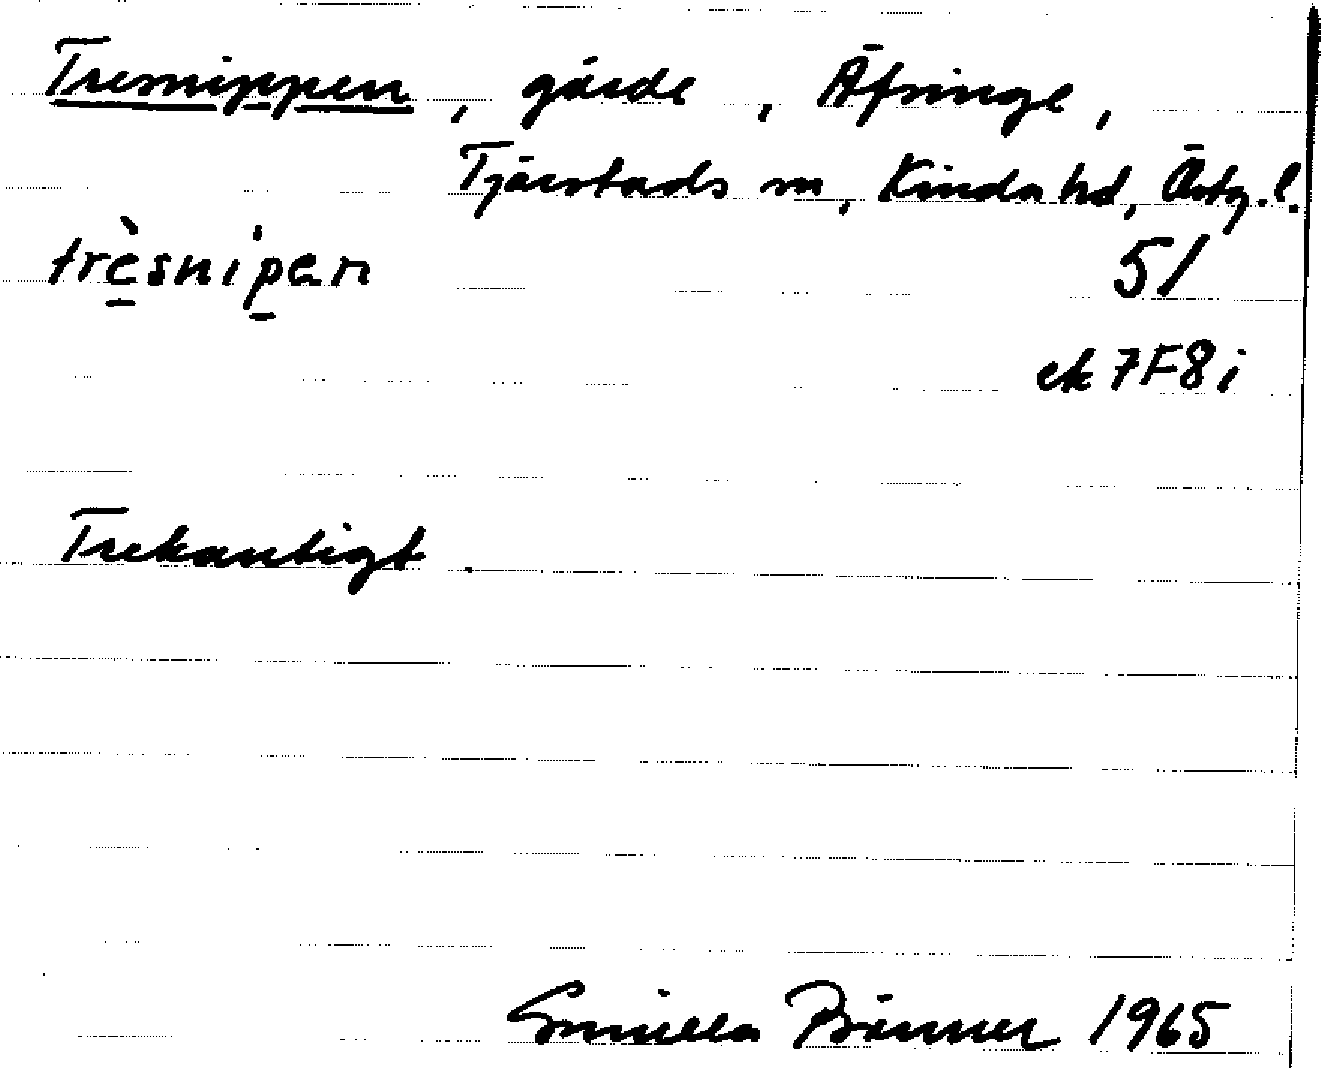 Tresnippen, gärde, Äfringe,
Tjärstads sn, Kinda hd, Östg. l.
trèsnipen 51
ek 7F8i
Trekantigt.
Gunilla 1965